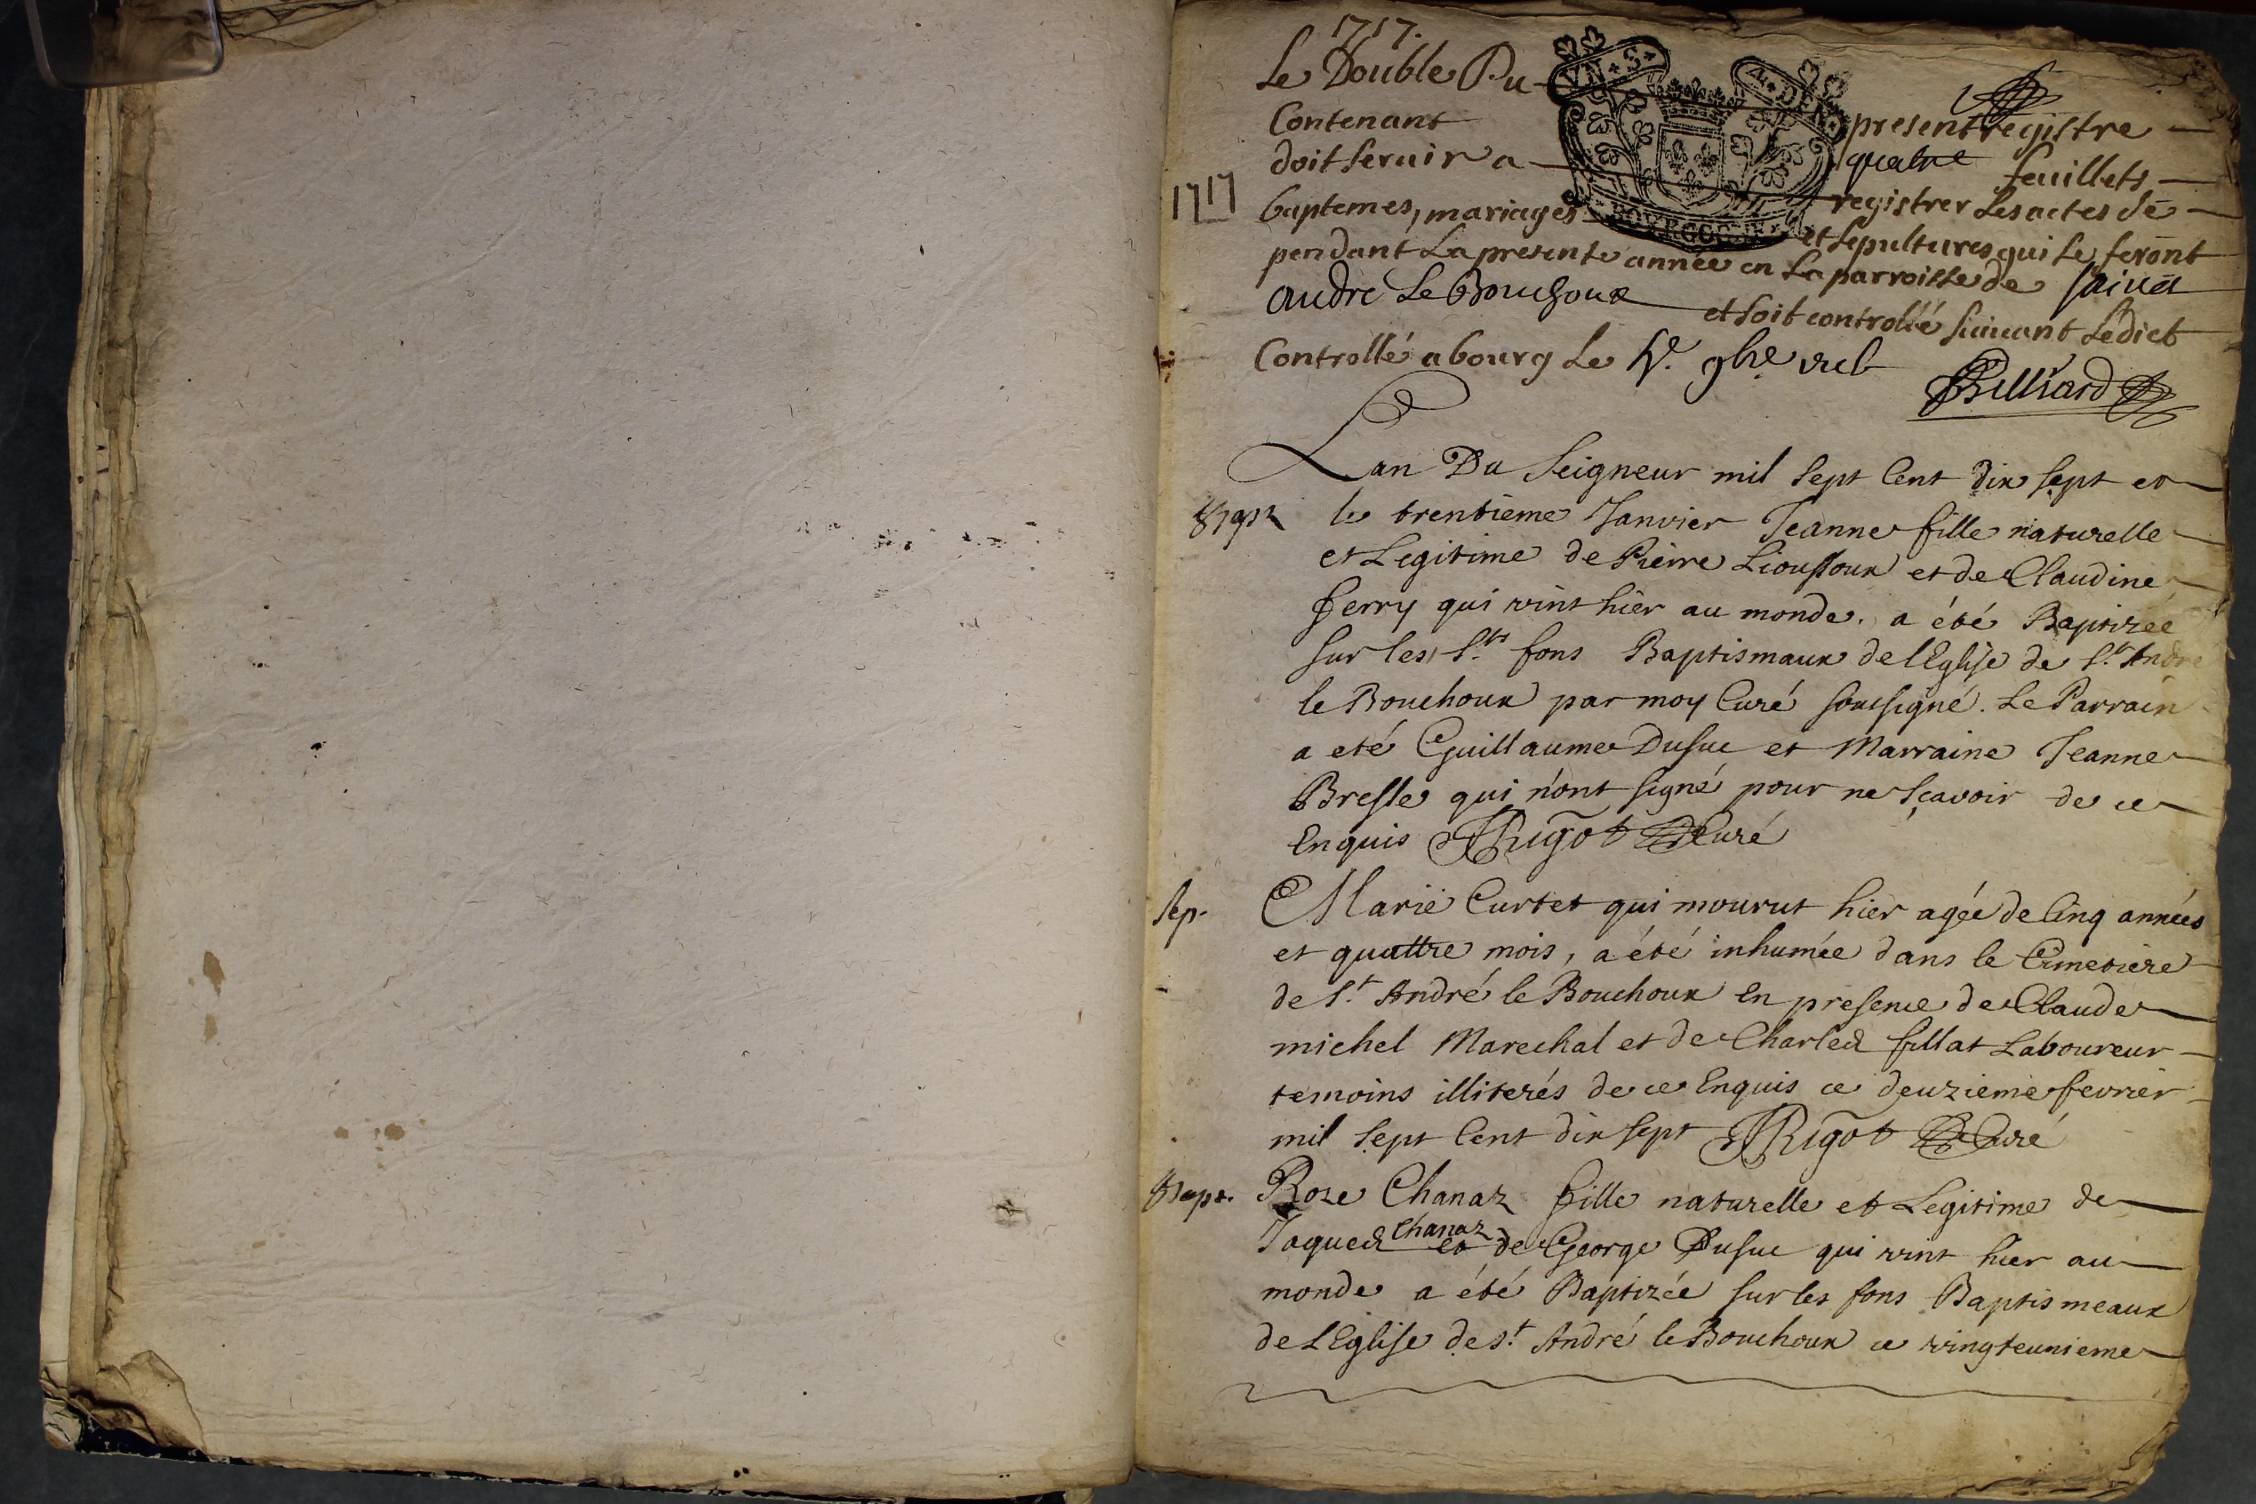 1717.
Le Double Du present registre
Contenant quatre feuillets
doit servir a registrer les actes de
1717
baptemes, mariages et sepultures qui se feront
pendant la presente année en la parroisse de saint
andré le Bouchoux et soit controllé suivant l'edict
Controllé a bourg le 9bre
Billiard
VN·S· 4·DEN
BOVRGOGNE
Lan Du Seigneur mil sept Cent dix sept et
le trentième Janvier Jeanne fille naturelle
et Legitime de Pierre Lioussoux et de Claudine
ferry qui vint hier au monde. a été Baptizée
sur les sts fons Baptismaux de l'Eglise de st. André
le Bouchoux par moy Curé soussigné. Le Parrain
a eté Guillaume Dusuc et Marraine Jeanne
Bresse qui n'ont signé pour ne sçavoir de ce
Enquis Rigot Curé
Sep.
Marie Curtet qui mourut hier agée de Cinq années
et quattre mois, a été inhumée dans le Cimetiere
de st. André le Bouchoux En presence de Claude
michel Marechal et de Charles fillat Laboureur
temoins illiterés de ce Enquis ce deuzieme fevrier
mil sept Cent dix sept Rigot Curé
Bapt.
Roze Chanaz fille naturelle et Legitime de
Jaques Chanaz et de George Dusuc qui vint hier au
monde a été Baptizée sur les fons Baptismeaux
de l'Eglise de st. André le Bouchoux ce vingteunieme